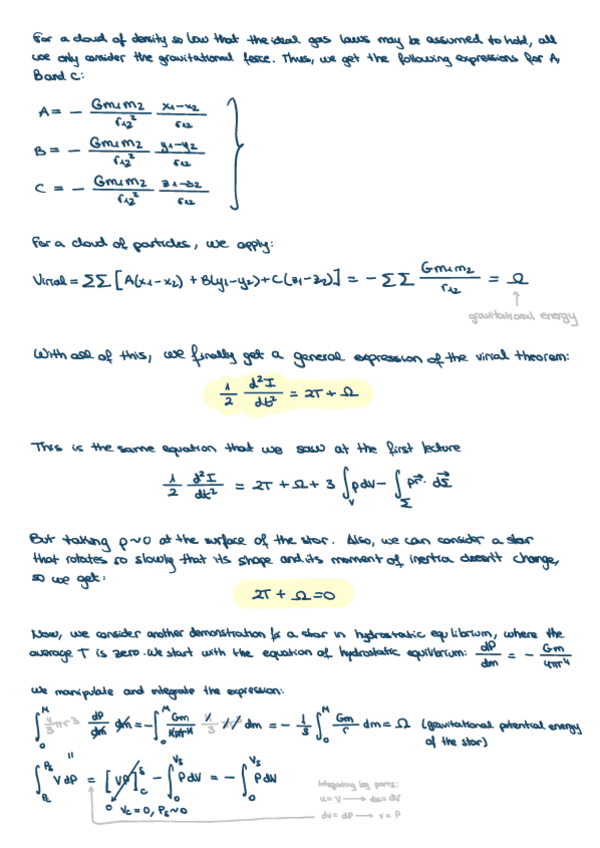 For a cloud of density so low that the ideal gas laws may be assumed to hold, all
we only consider the gravitational force. Thus, we get the following expressions for A,
B and C:
A = - Gm₁m₂/r₁₂² x₁-x₂/r₁₂
B = - Gm₁m₂/r₁₂² y₁-y₂/r₁₂
C = - Gm₁m₂/r₁₂² z₁-z₂/r₁₂
For a cloud of particles, we apply:
Virial = ΣΣ [A(x₁-x₂) + B(y₁-y₂) + C(z₁-z₂)] = - ΣΣ Gm₁m₂/r₁₂ = Ω
gravitational energy
With all of this, we finally get a general expression of the virial theorem:
1/2 d²I/dt² = 2T + Ω
This is the same equation that we saw at the first lecture
1/2 d²I/dt² = 2T + Ω + 3 ∫_V p dV - ∫_Σ p r⃗ · dΣ⃗
But taking p~0 at the surface of the star. Also, we can consider a star
that rotates so slowly that its shape and its moment of inertia doesn't change,
so we get:
2T + Ω = 0
Now, we consider another demonstration for a star in hydrostatic equilibrium, where the
average T is zero. We start with the equation of hydrostatic equilibrium: dP/dm = - Gm/4πr⁴
We manipulate and integrate the expression:
∫₀^M 4/3 πr³ dP/dm dm = - ∫₀^M Gm/4πr⁴ 4/3 πr³ dm = - 1/3 ∫₀^M Gm/r dm = Ω (gravitational potential energy
of the star)
"
∫_Pc^Ps V dP = [VP]_c^s - ∫₀^Vs P dV = - ∫₀^Vs P dV
0 Vc = 0, Ps ~ 0
Integrating by parts:
u = V → du = dV
dv = dP → v = P